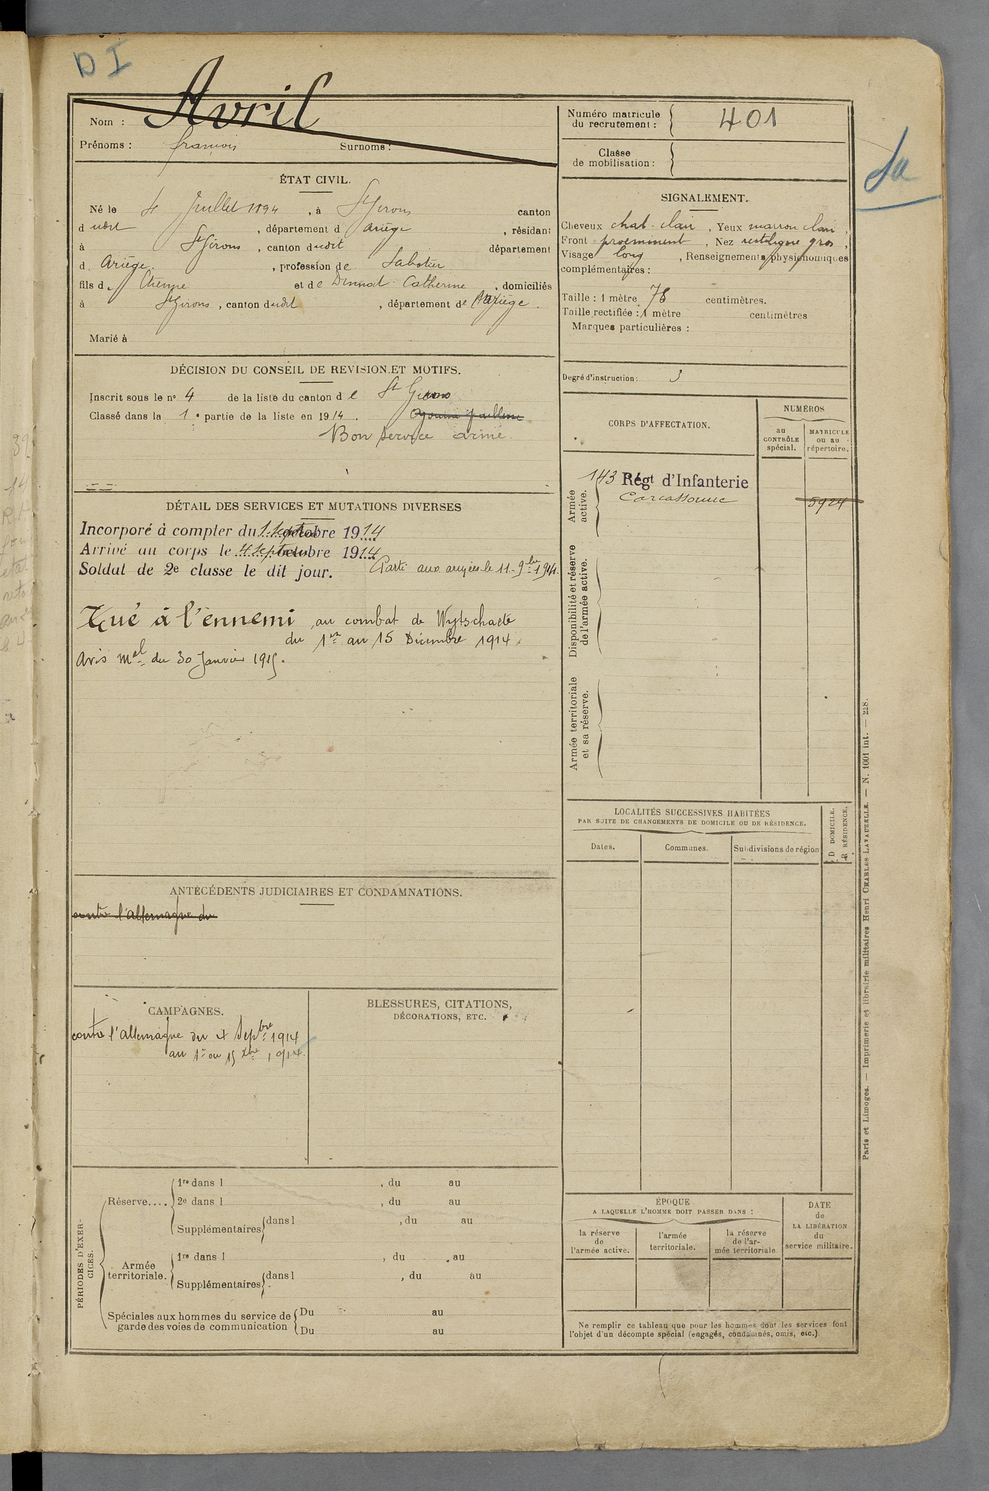 DI
Nom : Avril
Prénoms : françois Surnoms :
Numéro matricule
du recrutement : 401
Classe
de mobilisation :
Sa
ÉTAT CIVIL.
Né le 4 Juillet 1894, à St Girons canton
d udit, département d Ariège, résidant
à St Girons, canton dudit département
d Ariège, profession de Sabotier
fils d Etienne et de Dinnat Catherine, domiciliés
à St Girons, canton dudit, département de l'Ariège.
Marié à
SIGNALEMENT.
Cheveux chat. clair, Yeux marron clair,
Front proéminent, Nez rectiligne gros,
Visage long, Renseignements physionomiques
complémentaires :
Taille : 1 mètre 76 centimètres.
Taille rectifiée : 1 mètre centimètres
Marques particulières :
Degré d'instruction : 3
DÉCISION DU CONSEIL DE REVISION ET MOTIFS.
Inscrit sous le nº 4 de la liste du canton de St Girons
Classé dans la 1e partie de la liste en 1914.
Bon service armé
DÉTAIL DES SERVICES ET MUTATIONS DIVERSES
Incorporé à compter du 1 Septembre 1914
Arrivé au corps le 4 Septembre 1914
Soldat de 2e classe le dit jour. Parti aux armées le 11-9bre 1914.
Tué à l'ennemi au combat de Wytschaete
du 1er au 15 Décembre 1914.
Avis mel du 30 Janvier 1915.
CORPS D'AFFECTATION.
NUMÉROS
au
CONTRÔLE
spécial.
MATRICULE
ou au
répertoire.
Armée
active.
143 Régt d'Infanterie
Carcassonne
5924
Disponibilité et réserve
de l'armée active.
Armée territoriale
et sa réserve.
LOCALITÉS SUCCESSIVES HABITÉES
PAR SUITE DE CHANGEMENTS DE DOMICILE OU DE RÉSIDENCE.
Dates.
Communes.
Subdivisions de région
D DOMICILE.
R RÉSIDENCE.
ANTÉCÉDENTS JUDICIAIRES ET CONDAMNATIONS.
contre l'allemagne du
CAMPAGNES.
contre l'allemagne du 4 Sepbre 1914
au 1er au 15 Xbre 1914.
BLESSURES, CITATIONS,
DÉCORATIONS, ETC.
PÉRIODES D'EXERCICES.
Réserve....
1re dans l , du au
2e dans l , du au
Supplémentaires dans l , du au
Armée
territoriale.
1re dans l , du au
Supplémentaires dans l , du au
Spéciales aux hommes du service de
garde des voies de communication
Du au
Du au
ÉPOQUE
A LAQUELLE L'HOMME DOIT PASSER DANS :
la réserve
de
l'armée active.
l'armée
territoriale.
la réserve
de l'ar-
mée territoriale
DATE
de
LA LIBÉRATION
du
service militaire.
Ne remplir ce tableau que pour les hommes dont les services font
l'objet d'un décompte spécial (engagés, condamnés, omis, etc.)
Paris et Limoges. — Imprimerie et librairie militaires Henri CHARLES LAVAUZELLE. — N. 1001 int. — 218.